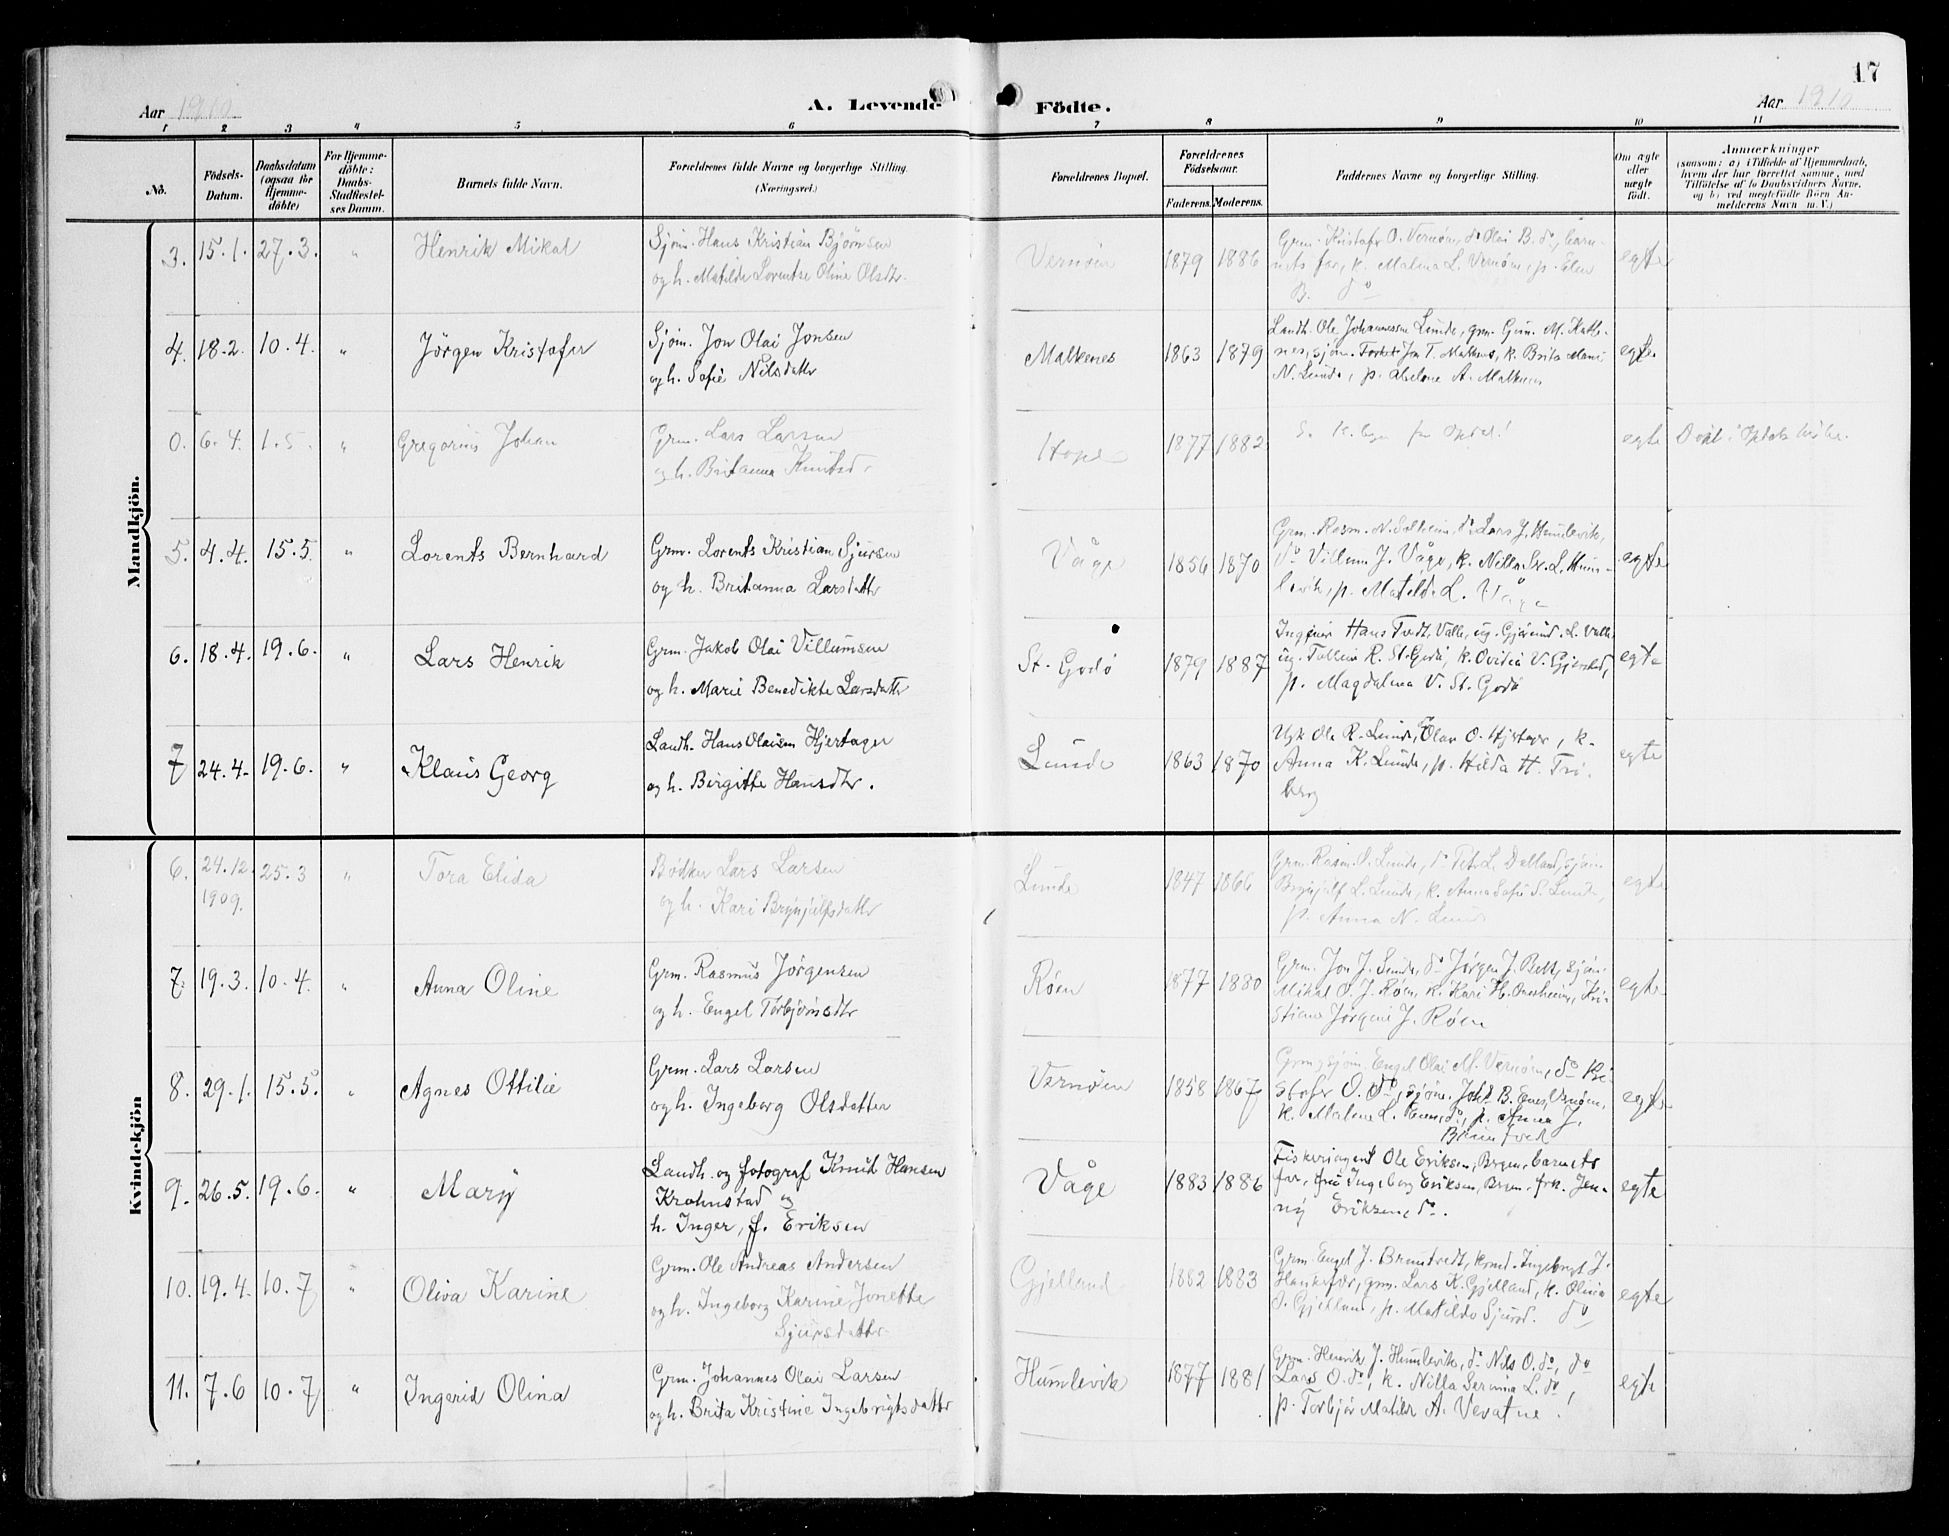 17
Aar 1910
A. Levende Födte.
Aar 1910
1 2 3 4 5 6 7 8 9 10 11
No.
Födsels-Datum.
Daabsdatum (ogsaa for Hjemme-döbte)
For Hjemme-döbte: Daabs-Stadfæstel-ses Datum.
Barnets fulde Navn.
Forældrenes fulde Navne og borgerlige Stilling. (Næringsvei.)
Forældrenes Bopæl.
Forældrenes Födselsaar.
Faderens. Moderens.
Faddernes Navne og borgerlige Stilling.
Om ægte eller uægte födt.
Anmærkninger
(saasom: a) i Tilfælde af Hjemmedaab,
hvem der har forrettet samme, med
Tilföielse af to Daabsvidners Navne,
og b) ved uægtefödte Börn An-
melderens Navn m. V.)
Mandkjön.
3. 15.1. 27.3. " Henrik Mikal
Sjøm. Hans Kristian Bjørnsen
og h. Matilde Lorentse Oline Olsdtr.
Vernøen 1879 1886
Grm. Kristofr O. Vernøen, do Olai B. do, bar-
nets far, k. Malina L. Vernøen, p. Elen
B. do
egte
4. 18.2. 10.4. " Jörgen Kristofer
Sjøm. Jon Olai Jonsen
og h. Sofie Nilsdatter
Malkenes 1863 1879
Landh. Ole Johannessen Lunde, grm. M.
nes, sjøm. Jon T. Malknes, k. Brita
N. Lunde, p. A. Malknes
egte
0. 6.4. 1.5. " Gregorius Johan
Grm. Lars Larsen
og h. Britanna Knutsd.
Hope 1877 1882
egte
5. 4.4. 15.5 " Lorents Bernhard
Grm. Lorents Kristian Sjursen
og h. Britanna Larsdatter
Våge 1856 1870
Grm. Rasm. N. Solheim, do Lars J. Humlevik,
do Villum J. Våge, k. Nilla Sr. L. Hum-
levik, p. Matilde L. Våge
egte
6. 18.4. 19.6. " Lars Henrik
Grm. Jakob Olai Villumsen
og h. Marie Benedikte Larsdattr
St. Godø 1879 1887
Ingeniør Hans Tvedt, Valle, ug. L. Valle,
ug. R. St. Godø, k. V.
p. Magdalena V. St. Godø
egte
7 24.4. 19.6. " Klaus Georg
Landh. Hans Olaisen Hjertager
og h. Birgitte Hansdtr.
Lunde 1863 1870
Ole R. Lunde, Olav O. Hjertager, k.
Anna K. Lunde, p. Hilda H. Trö-
berg
egte
Kvindekjön
6. 24.12. 1909. 25.3 " Tora Elida
Bødker Lars Larsen
og h. Kari Brynjulfsdatter
Lunde 1847 1866
Grm. Rasm. O. Lunde, do Petr L. Dalland, sjøm.
Brynjulf L. Lunde, k. Anna Sofie S. Lunde,
p. Anna N. Lunde
egte
7. 19.3. 10.4. " Anna Oline
Grm. Rasmus Jörgensen
og h. Engel Torbjörnsdtr
Røen 1877 1880
Grm. Jon J. Lunde, do Jörgen J. sjøm.
Mikal O. J. Røen, k. Kari H. Kri-
stiane Jörgine J. Røen
egte
8. 29.1. 15.5. " Agnes Ottilie
Grm. Lars Larsen
og h. Ingeborg Olsdatter
Vernøen 1858 1867
Grm, sjøm. Engel Olai M. Vernøen, do Kri-
stofr O. do, sjøm. B. Enes, Vernøen,
k. Malene L. do, p. Anna J.
Bruntvedt
egte
9. 26.5. 19.6. " Mary
Landh. og fotograf Knud Hansen
Krohnstad og
h. Inger, f. Eriksen
Våge 1883 1886
Fiskeriagent Ole Eriksen, Brgen, barnets
far, fru Ingeborg Eriksen, Brgen, frk. Jen-
ny Eriksen, do.
egte
10. 19.4. 10.7 " Oliva Karine
Grm. Ole Andreas Andersen
og h. Ingeborg Karine Jonette
Sjursdatter
Gjelland 1882 1883
Grm Engel J. Bruntvedt, Ingebrigt J.
grm. Lars K. Gjelland, k. Olina
J. Gjelland, p. Matilde Sjursd. do
egte
11. 7.6 10.7 " Ingerid Olina
Grm. Johannes Olai Larsen
og h. Brita Kristine Ingebrigtsdatter
Humlevik 1877 1881
Grm. Henrik J. Humlevik, do Nils O. do, do
Lars O. do, k. Nilla Serina L. do,
p. Torbjør Matilde A. Vevatne!
egte